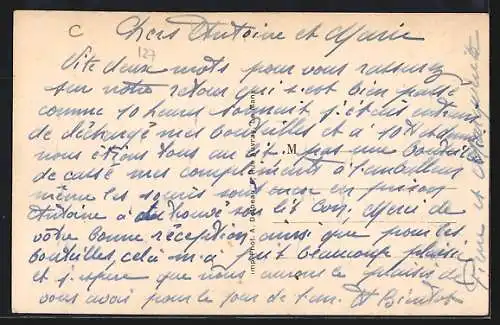 C
127
Chers Antoine et Marie
Vite deux mots pour vous rassurez
sur notre retour qui s'est bien passé
comme 10 heures sonnait j'étais entrain
de déchargé mes bouteilles et à 10h¼
nous étions tous au lit pas une bouteille
de cassé mes compliments à l'emballeur
même les souris sont en poison
Antoine à du trouvé son lit bon, Merci de
votre bonne réception ainsi que pour les
bouteilles, celà m'a fait beaucoup plaisir
et j'espère que nous aurons le plaisir de
vous avoir pour le jour de l'an. A Bientot
Pierre et
M